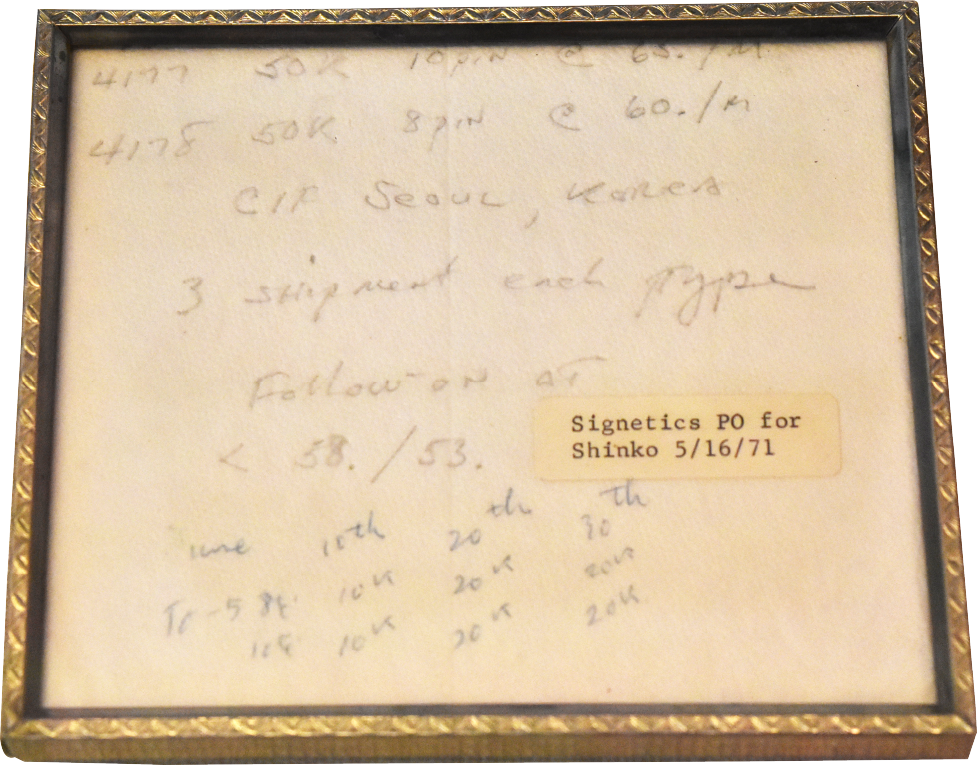 4177 50K 10 pin @ 65./M
4178 50K 8 pin @ 60./M
CIF Seoul, Korea
3 shipment each type
Follow-on at
< 58./53.
Signetics PO for
Shinko 5/16/71
June 10th 20th 30th
To-5 8 10K 20K 20K
10 10K 20K 20K